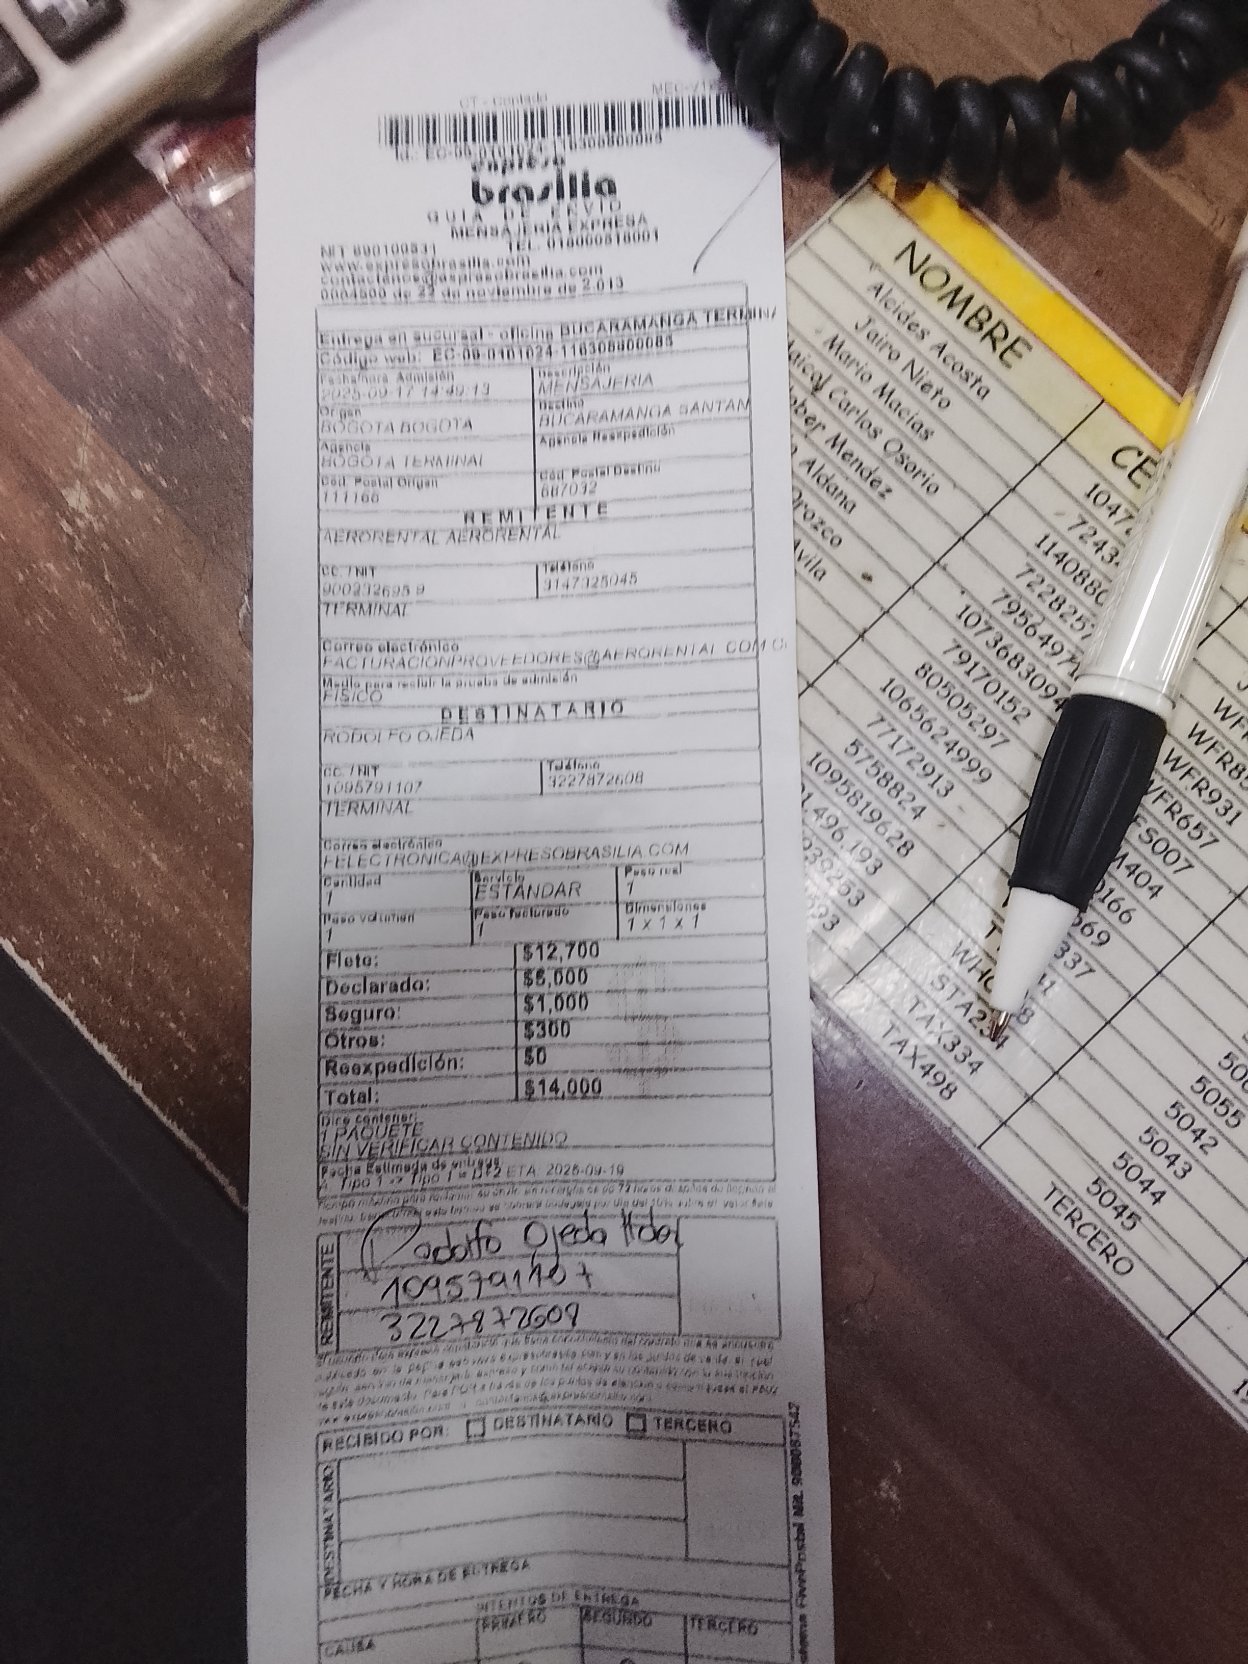 CT - Contado
expreso
brasilia
GUIA DE ENVIO
MENSAJERIA EXPRESA
TEL. 018000518001
NIT 890100531
www.expresobrasilia.com
contactenos@expresobrasilia.com
0004900 de 22 de noviembre de 2.013
Entrega en sucursal - oficina BUCARAMANGA TERMINA
Código web: EC-09-0101024-116308800085
Fecha/hora Admisión
2025-09-17 14:49:13
Descripción
MENSAJERIA
Origen
BOGOTA BOGOTA
Destino
BUCARAMANGA SANTAN
Agencia
BOGOTA TERMINAL
Agencia Reexpedición
Cód. Postal Origen
111166
Cód. Postal Destino
687032
REMITENTE
AERORENTAL AERORENTAL
CC. / NIT
900232695 9
Teléfono
3147325045
TERMINAL
Correo electrónico
FACTURACIONPROVEEDORES@AERORENTAL.COM.C
Medio para recibir la prueba de admisión
FISICO
DESTINATARIO
RODOLFO OJEDA
CC. / NIT
1095791107
Teléfono
3227872608
TERMINAL
Correo electrónico
FELECTRONICA@EXPRESOBRASILIA.COM
Cantidad
1
Servicio
ESTANDAR
Peso real
1
Peso volumen
1
Peso facturado
1
Dimensiones
1 x 1 x 1
Flete: $12,700
Declarado: $5,000
Seguro: $1,000
Otros: $300
Reexpedición: $0
Total: $14,000
Dice contener:
1 PAQUETE
SIN VERIFICAR CONTENIDO
Fecha Estimada de entrega
A: Tipo 1 -> Tipo 1 = D+2 ETA: 2025-09-19
REMITENTE
Rodolfo Ojeda
1095791107
3227872608
RECIBIDO POR: DESTINATARIO TERCERO
DESTINATARIO
FECHA Y HORA DE ENTREGA
INTENTOS DE ENTREGA
CAUSA PRIMERO SEGUNDO TERCERO
Postal Nit. 900087542
NOMBRE
Alcides Acosta
Jairo Nieto
Mario Macias
Carlos Osorio
Mendez
Aldana
Orozco
Avila
CE
1047
7243
1140880
7228257
7956497
1073683094
79170152
80505297
1065624999
77172913
5758824
1095819628
WFR931
WFR657
TAX334
TAX498
5055
5042
5043
5044
5045
TERCERO